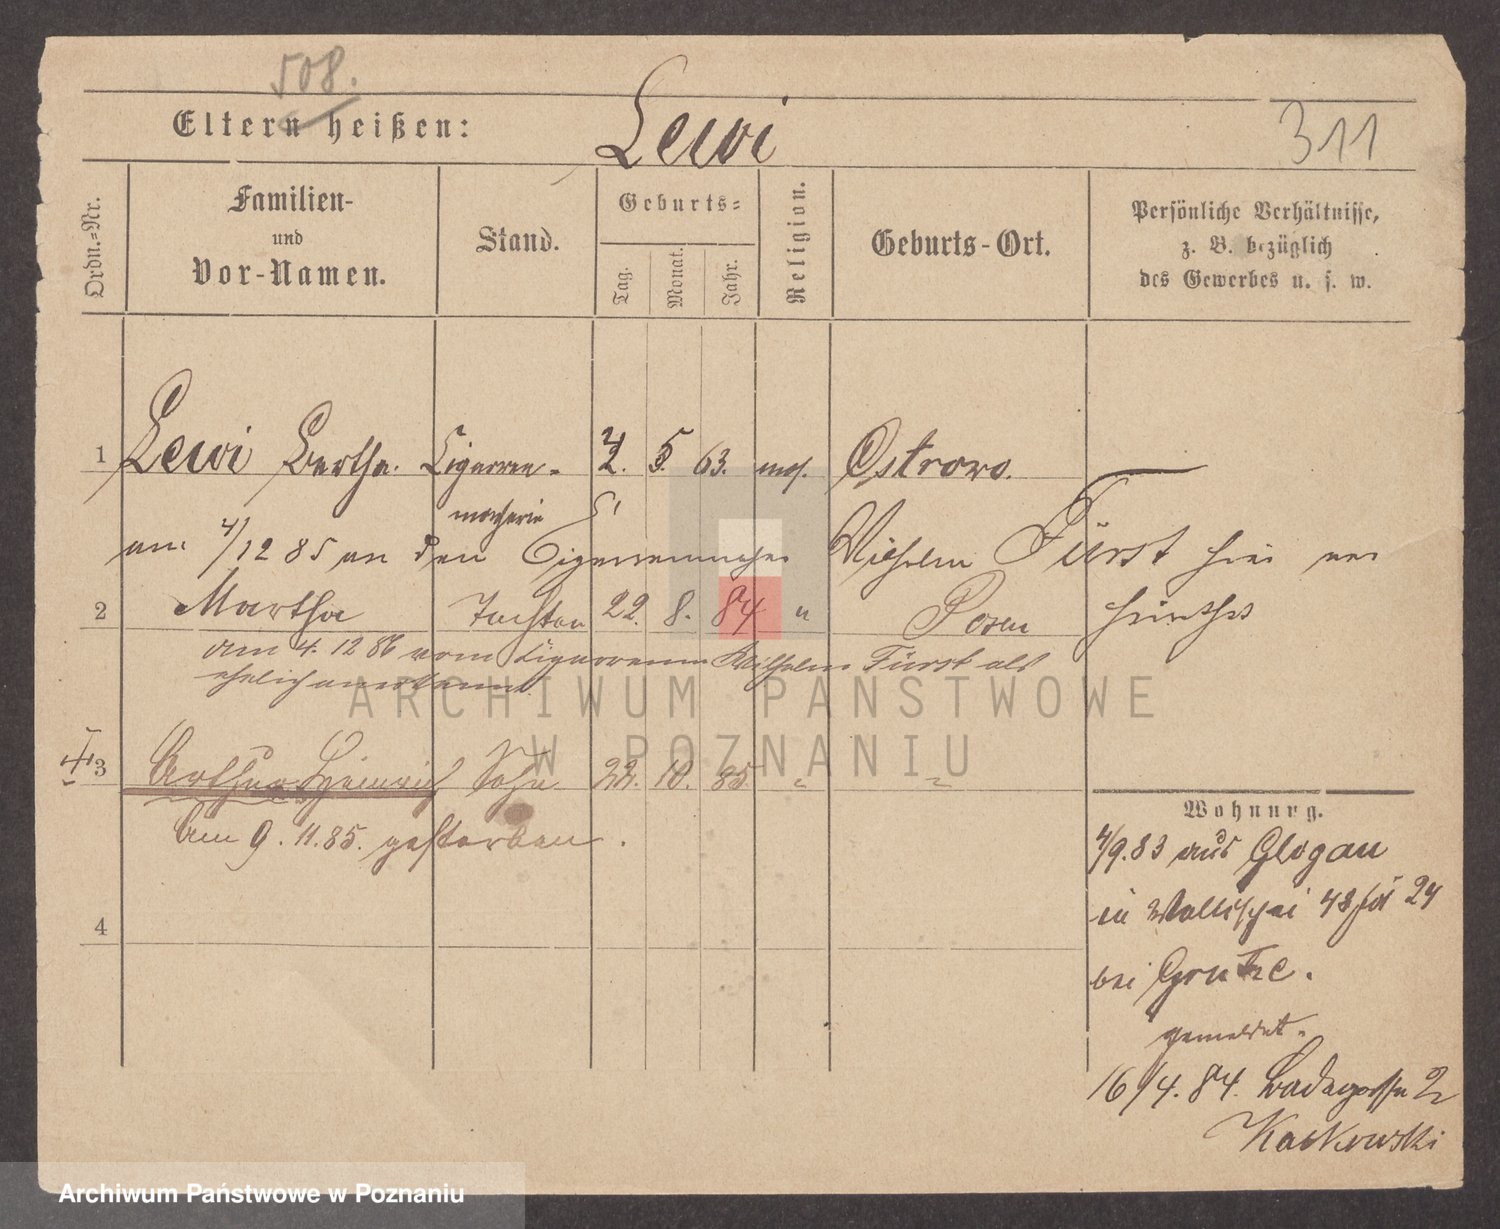 508.
Eltern heißen: Lewi 311
Ordn.-Nr.
Familien-
und
Vor-Namen.
Stand.
Geburts-
Tag. Monat. Jahr.
Religion.
Geburts-Ort.
Persönliche Verhältnisse,
z. B. bezüglich
des Gewerbes u. s. w.
1 Lewi Bertha. Cigarren- 2. 5. 63. mos. Ostrowo.
macherin
am 4/12 85 an den Cigarrenmacher Wilhelm Fürst hier ver
2 Martha Tochter 22. 8. 84 " Posen heirathet
am 4. 12 86 vom Cigarrenm Wilhelm Fürst als
ehelich anerkannt
3 Arthur Heinrich Sohn 22. 10. 85. " "
Am 9. 11. 85. gestorben.
4
Wohnung.
4/9. 83 aus Glogau
in Wallischei 48 24
bei
gemeldet.
16/4. 84. Badegasse 2
Kaskowski
ARCHIWUM PAŃSTWOWE
W POZNANIU
Archiwum Państwowe w Poznaniu